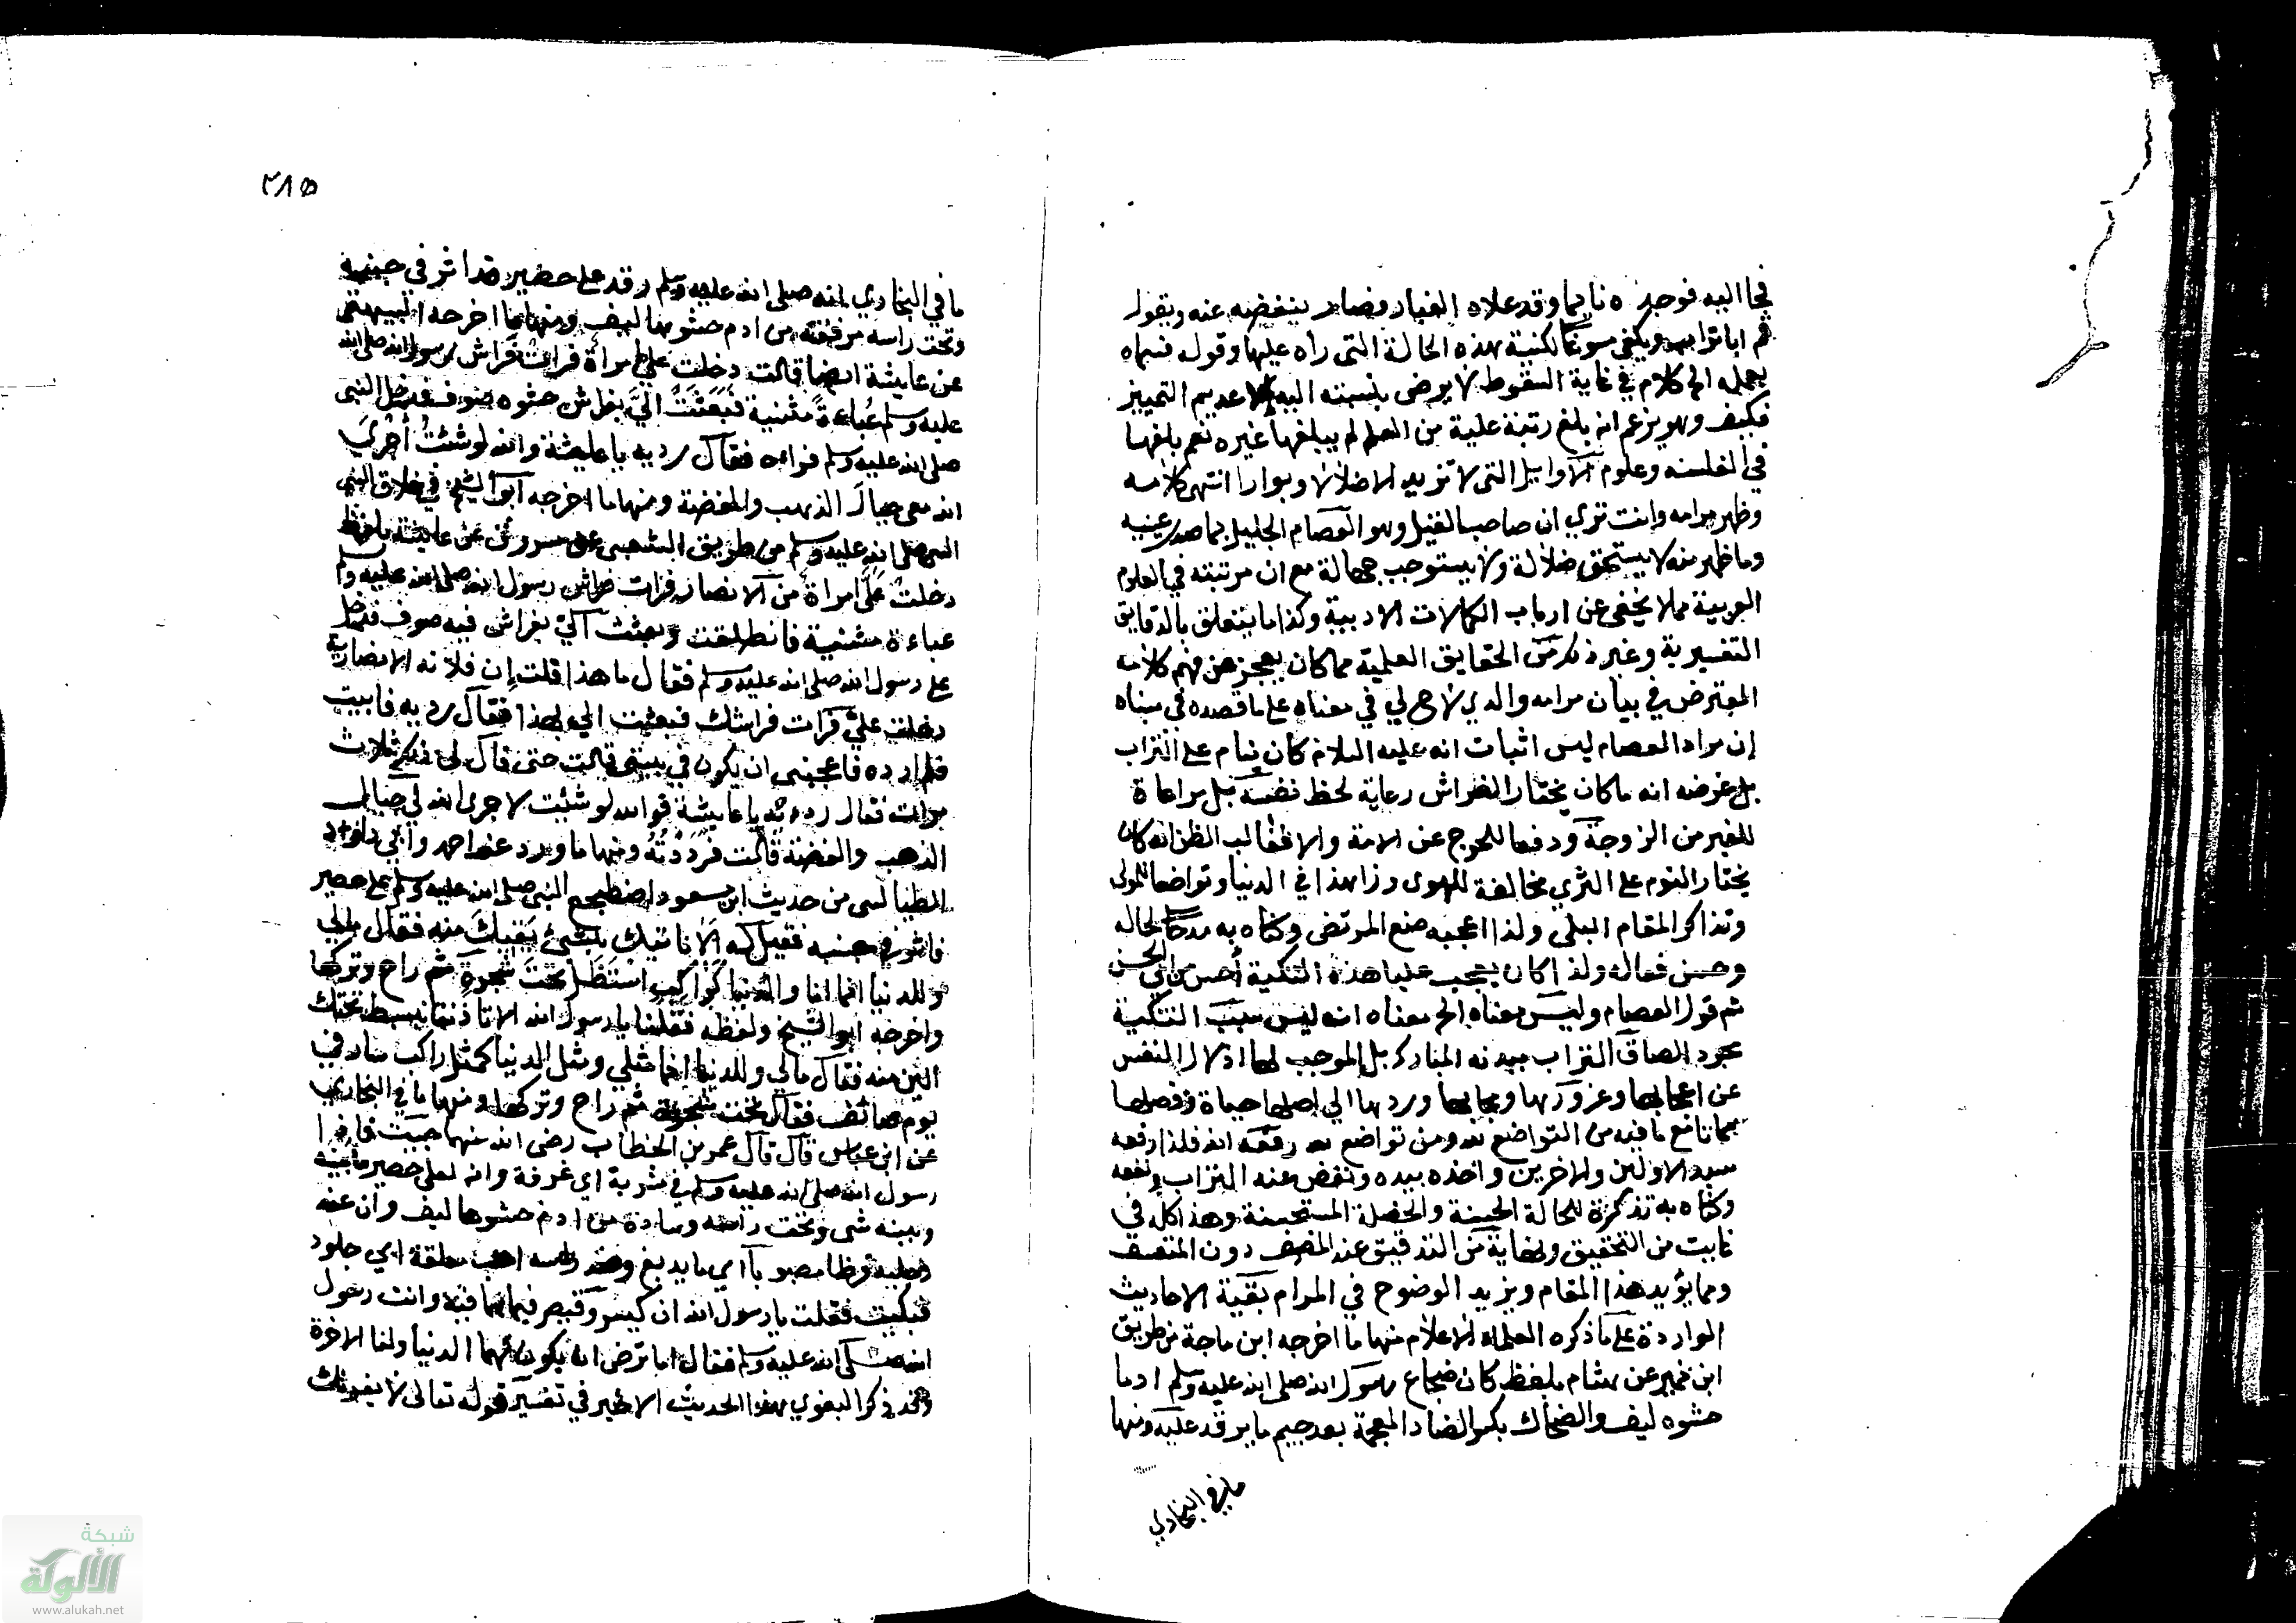 فجا اليه فوجده نايما وقد علاه الغبار فصار ينفضه عنه ويقول
قم ابا تراب ويكفى مسوغا لكنية بهذه الحالة التى رأه عليها وقول فسماه
بجمله الخ كلام في غاية السقوط لا يرضى بنسبته اليه الا عديم التمييز
فكيف وهو يزعم انه بلغ رتبة علية من العلم لم يبلغها غيره نعم بلغها
في الفلسفه وعلوم الاوايل التى لا تزيد الا ضلالا وبوارا انتهى كلامه
وظهر مرامه وانت ترى ان صاحب القيل وهو العصام الجليل بما صدر عنه
وما ظهر منه لا يستحق ضلالة ولا يستوجب جهالة مع ان مرتبته في العلوم
العربية مما لا يخفى عن ارباب الكمالات الادبية وكذا ما يتعلق بالدقايق
التفسيرية وغير ذلك من الحقايق العلمية مما كان يعجز عن فهم كلامه
المعترض في بيان مرامه والذي لاح لي في معناه على ما قصده في مبناه
ان مراد العصام ليس اثبات انه عليه السلام كان ينام على التراب
بل غرضه انه ما كان يختار الفراش رعاية لحظ نفسه بل مراعاة
للغير من الزوجة ودفعا للحرج عن الامة والا فغالب الظن انه كان
يختار النوم على الثرى مخالفة للهوى وزاهدا في الدنيا وتواضعا للمولى
وتذاكر المقام البلى ولذا اعجبه صنع المرتضى وكناه به مدحا لحاله
وحسن فعاله ولذا كان يعجب عليا هذه التكنية أحسن من ابي الحسن
ثم قول العصام وليس معناه الخ معناه انه ليس سبب التكنية
مجرد الصاق التراب ببدنه المبارك بل الموجب لها اذلال النفس
عن اعجابها وغرورها وردها الى اصلها حياة وفصلها
مماتا مع ما فيه من التواضع لله ومن تواضع لله رفعه الله فلذا رفعه
سيد الاولين والاخرين واخذه بيده ونفض عنه التراب
وكناه به تذكرة للحالة الحسنة والخصلة المستحسنة وهذا كله في
غايت من التحقيق ونهاية من التدقيق عند المنصف دون المتعسف
ومما يؤيد هذا المقام ويزيد الوضوح في المرام بقية الاحاديث
الواردة على ما ذكره العلماء الاعلام منها ما اخرجه ابن ماجة من طريق
ابن نمير عن هشام بلفظ كان ضجاع رسول الله صلى الله عليه وسلم ادما
حشوه ليف والضجاع بكسر الضاد المعجمة بعد جيم ما يرقد عليه ومنها
ما في البخاري
٢١٥
ما في البخاري انه صلى الله عليه وسلم رقد على حصير قد اثر في جنبه
وتحت راسه مرفقة من ادم حشوها ليف ومنها ما اخرجه البيهقى
عن عايشة ايضا قالت دخلت علي امرأة فرات فراش رسول الله صلى الله
عليه وسلم عباءة مثنية فبعثت الي بفراش حشوه صوف فدخل النبى
صلى الله عليه وسلم فراه فقال رديه يا عايشة والله لو شئت أجرى
الله معى جبال الذهب والفضة ومنها ما اخرجه ابو الشيخ في اخلاق النبى
صلى الله عليه وسلم من طريق الشعبى عن مسروق عن عايشة بلفظ
دخلت على امرأة من الانصار فرات فراش رسول الله صلى الله عليه وسلم
عباءة مثنية فانطلقت وبعثت الي بفراش فيه صوف فدخل
على رسول الله صلى الله عليه وسلم فقال ما هذا قلت ان فلانه الانصارية
دخلت علي فرات فراشك فبعثت الي بهذا فقال رديه فابيت
فلم ارده فاعجبنى ان يكون في بيتى قالت حتى قال لى ذلك ثلاث
مرات فقال رديه يا عايشة فوالله لو شئت لاجرى الله لي جبال
الذهب والفضة قالت فرددته ومنها ما ورد عند احمد وابي داود
الطيالسى من حديث ابن مسعود اضطجع النبى صلى الله عليه وسلم على حصير
فاثر في جنبه فقيل له الا ناتيك بشئ يقيك منه فقال مالي
وللدنيا انما انا والدنيا كراكب استظل تحت شجرة ثم راح وتركها
واخرجه ابو الشيخ ولفظه فقلنا يا رسول الله الا تاذننا نبسط تحتك
الين منه فقال مالي وللدنيا انما مثلي ومثل الدنيا كمثل راكب سار في
يوم صائف فقال تحت شجرة ثم راح وتركها ومنها ما في البخاري
عن ابن عباس قال قال عمر بن الخطاب رضى الله عنهما جيت فاذا
رسول الله صلى الله عليه وسلم في مشربة اي غرفة وانه لعلى حصير ما بينه
وبينه شى وتحت راسه وسادة من ادم حشوها ليف وان عند
رجليه قرظا مصبوبا اي ما يدبغ وعند راسه اهب معلقة اي جلود
فبكيت فقلت يا رسول الله ان كسرى وقيصر فيما هما فيه وانت رسول
الله صلى الله عليه وسلم فقال اما ترضى ان يكون لهما الدنيا ولنا الاخرة
وقد ذكر البغوي بهذا الحديث الاخير في تفسير قوله تعالى لا يغرنك
شبكة
الألوكة
www.alukah.net